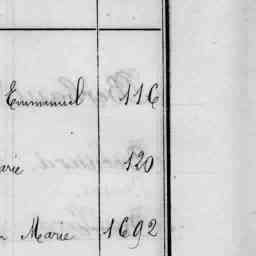 Emmanuel 116
arie 120
n Marie 1692